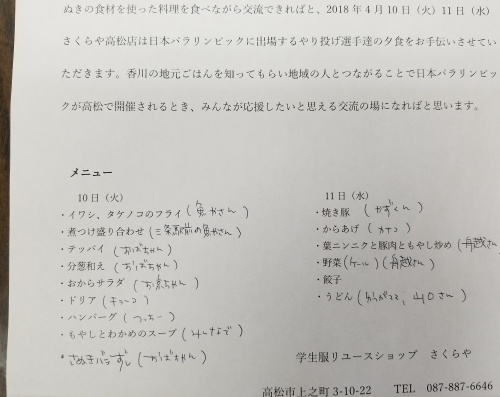 ぬきの食材を使った料理を食べながら交流できればと、2018年4月10日（火）11日（水）
さくらや高松店は日本パラリンピックに出場するやり投げ選手達の夕食をお手伝いさせてい
ただきます。香川の地元ごはんを知ってもらい地域の人とつながることで日本パラリンピッ
クが高松で開催されるとき、みんなが応援したいと思える交流の場になればと思います。
メニュー
10日（火）
・イワシ、タケノコのフライ（魚やさん）
・煮つけ盛り合わせ（三条駅前の魚やさん）
・テッパイ（おばちゃん）
・分葱和え（おばちゃん）
・おからサラダ（お京ちゃん）
・ドリア（キョーコ）
・ハンバーグ（つっちー）
・もやしとわかめのスープ（みんなで）
・さぬきバラずし（おばちゃん）
11日（水）
・焼き豚（かずくん）
・からあげ（カナコ）
・葉ニンニクと豚肉ともやし炒め（舟越さん
・野菜（ケール）（舟越さん）
・餃子
・うどん（、山口さん）
学生服リユースショップ さくらや
高松市上之町3-10-22 TEL 087-887-6646